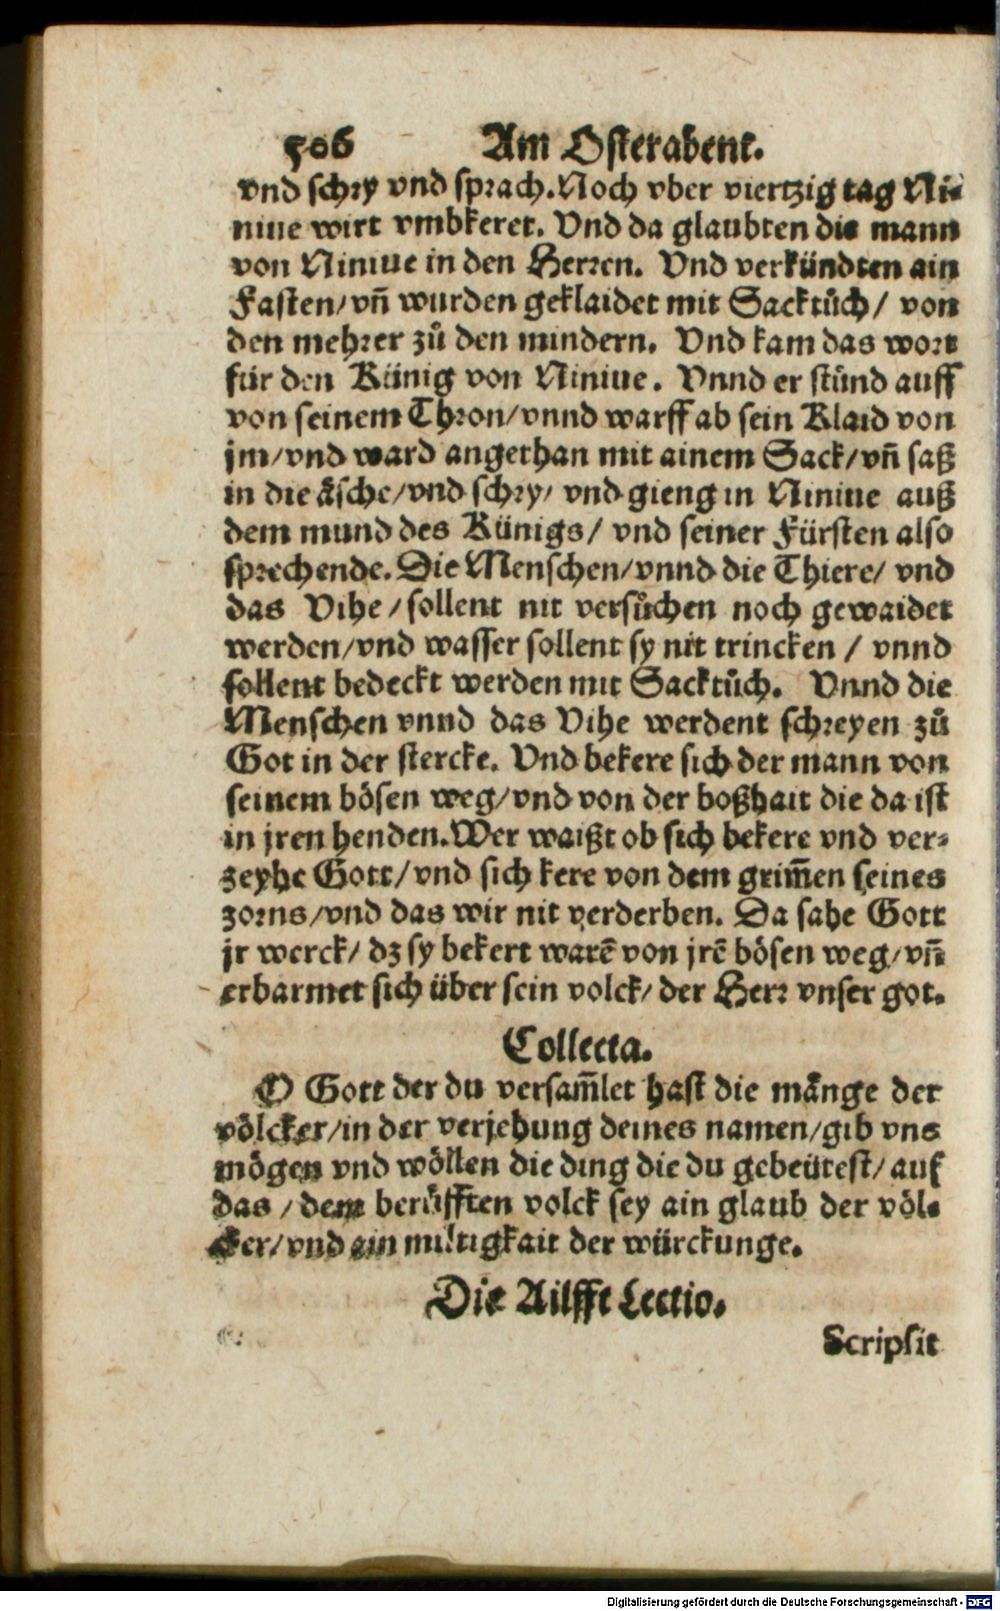 506 Am Osterabent.
vnd schry vnd sprach. Noch vber viertzig tag Ni⸗
niue wirt vmbkeret. Vnd da glaubten die mann
von Niniue in den Herren. Vnd verkündten ain
Fasten/ vñ wurden geklaidet mit Sacktůch/ von
den mehrer zů den mindern. Vnd kam das wort
für den Künig von Niniue. Vnnd er stůnd auff
von seinem Thron/ vnnd warff ab sein Klaid von
jm/ vnd ward angethan mit ainem Sack/ vñ saß
in die äsche/ vnd schry/ vnd gieng in Niniue auß
dem mund des Künigs/ vnd seiner Fürsten also
sprechende. Die Menschen/ vnnd die Thiere/ vnd
das Vihe/ sollent nit versůchen noch gewaidet
werden/ vnd wasser sollent sy nit trincken/ vnnd
sollent bedeckt werden mit Sacktůch. Vnnd die
Menschen vnnd das Vihe werdent schreyen zů
Got in der stercke. Vnd bekere sich der mann von
seinem bösen weg/ vnd von der boßhait die da ist
in jren henden. Wer waißt ob sich bekere vnd ver⸗
zeyhe Gott/ vnd sich kere von dem grim̃en seines
zorns/ vnd das wir nit verderben. Da sahe Gott
jr werck/ dz sy bekert warẽ von jrẽ bösen weg/ vñ
erbarmet sich über sein volck/ der Herr vnser got.
Collecta.
O Gott der du versam̃let hast die mänge der
völcker/ in der verjehung deines namen/ gib vns
mögen vnd wöllen die ding die du gebeütest/ auf
das/ dem berůfften volck sey ain glaub der völ⸗
cker/ vnd ein miltigkait der würckunge.
Die Ailfft Lectio.
Scripsit
Digitalisierung gefördert durch die Deutsche Forschungsgemeinschaft - DFG